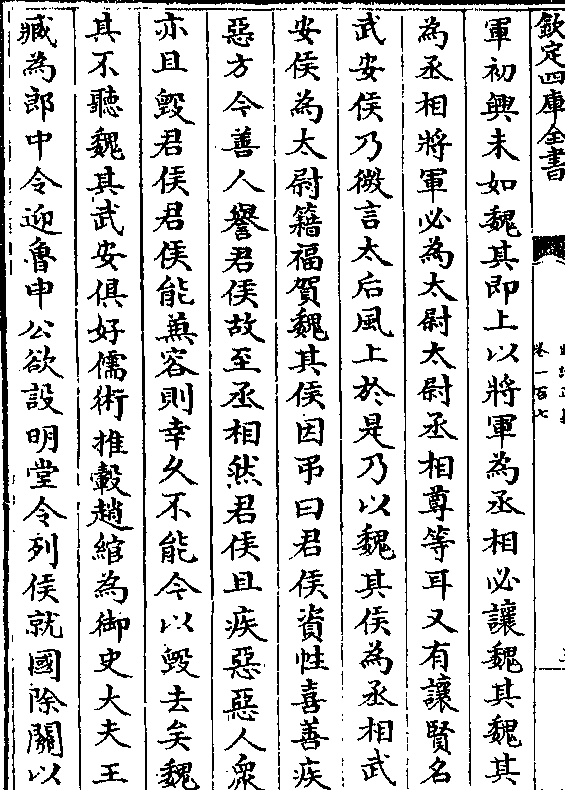 欽定四庫全書
卷一百七
軍初興未如魏其即上以將軍為丞相必讓魏其魏其
為丞相將軍必為太尉太尉丞相尊等耳又有讓賢名
武安侯乃微言太后風上於是乃以魏其侯為丞相武
安侯為太尉籍福賀魏其侯因弔曰君侯資性喜善疾
惡方今善人譽君侯故至丞相然君侯且疾惡惡人衆
亦且毀君侯君侯能兼容則幸久不能今以毀去矣魏
其不聽魏其武安俱好儒術推轂趙綰為御史大夫王
臧為郎中令迎魯申公欲設明堂令列侯就國除關以